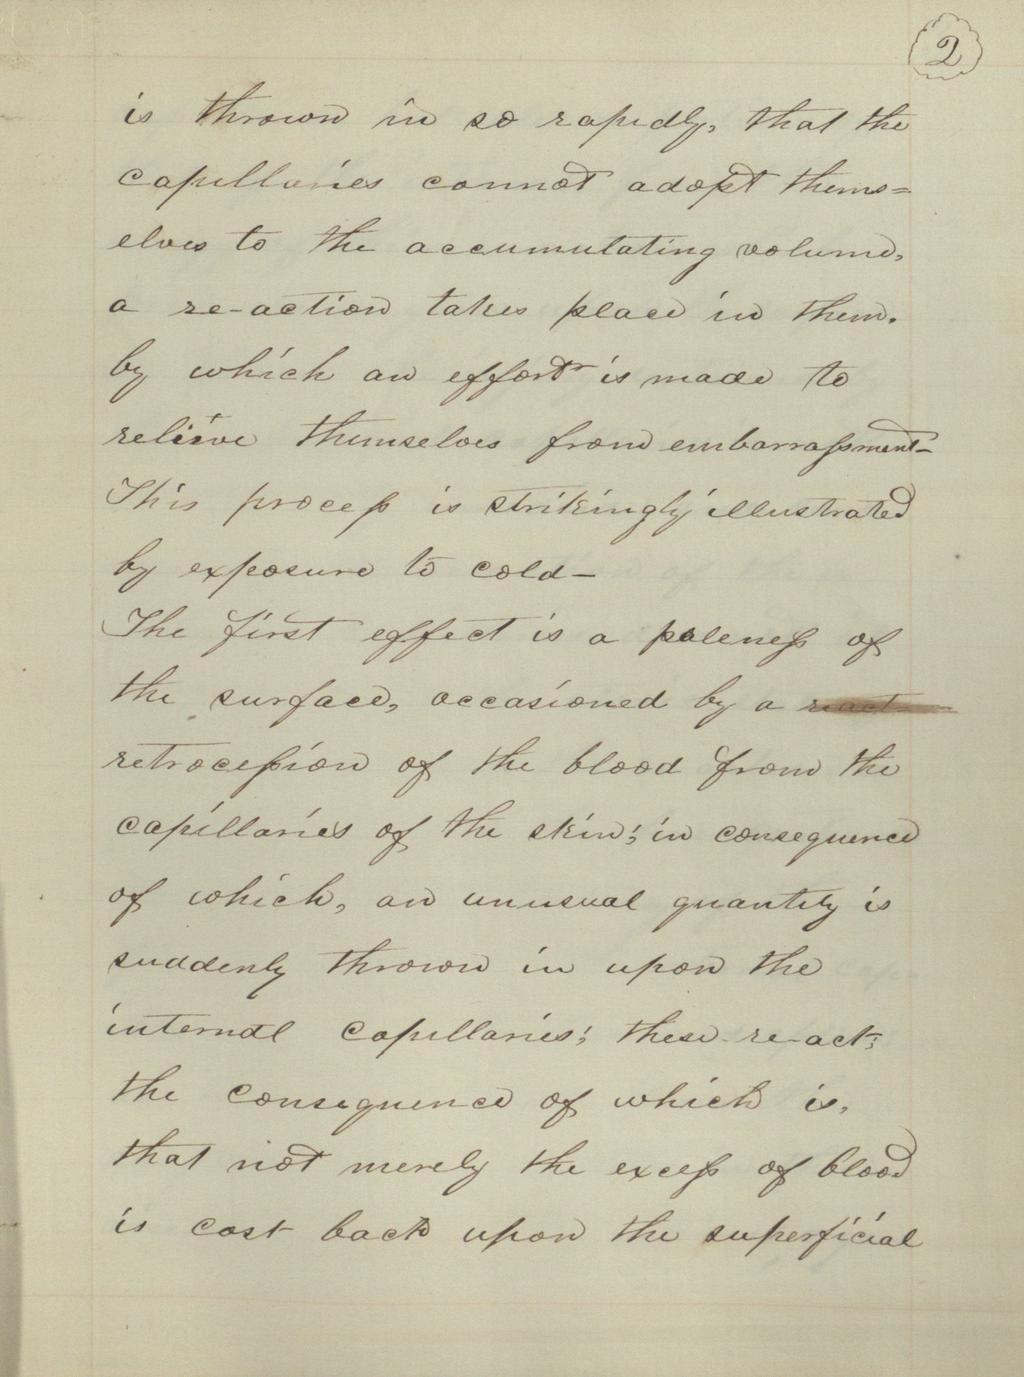 2
is thrown in so rapidly, that the
capillaries cannot adapt thems=
elves to the accumutating volume,
a re-action takes place in them.
by which an effort is made to
relieve themselves from embarrassment-
This process is strikingly illustrated
by exposure to cold-
The first effect is a paleness of
the surface, occasioned by a react
retrocession of the blood from the
capillaries of the skin; in consequence
of which, an unusual quantity is
suddenly thrown in upon the
internal capillaries; these re-act;
the consequence of which is,
that not merely the excess of blood
is cast back upon the superficial